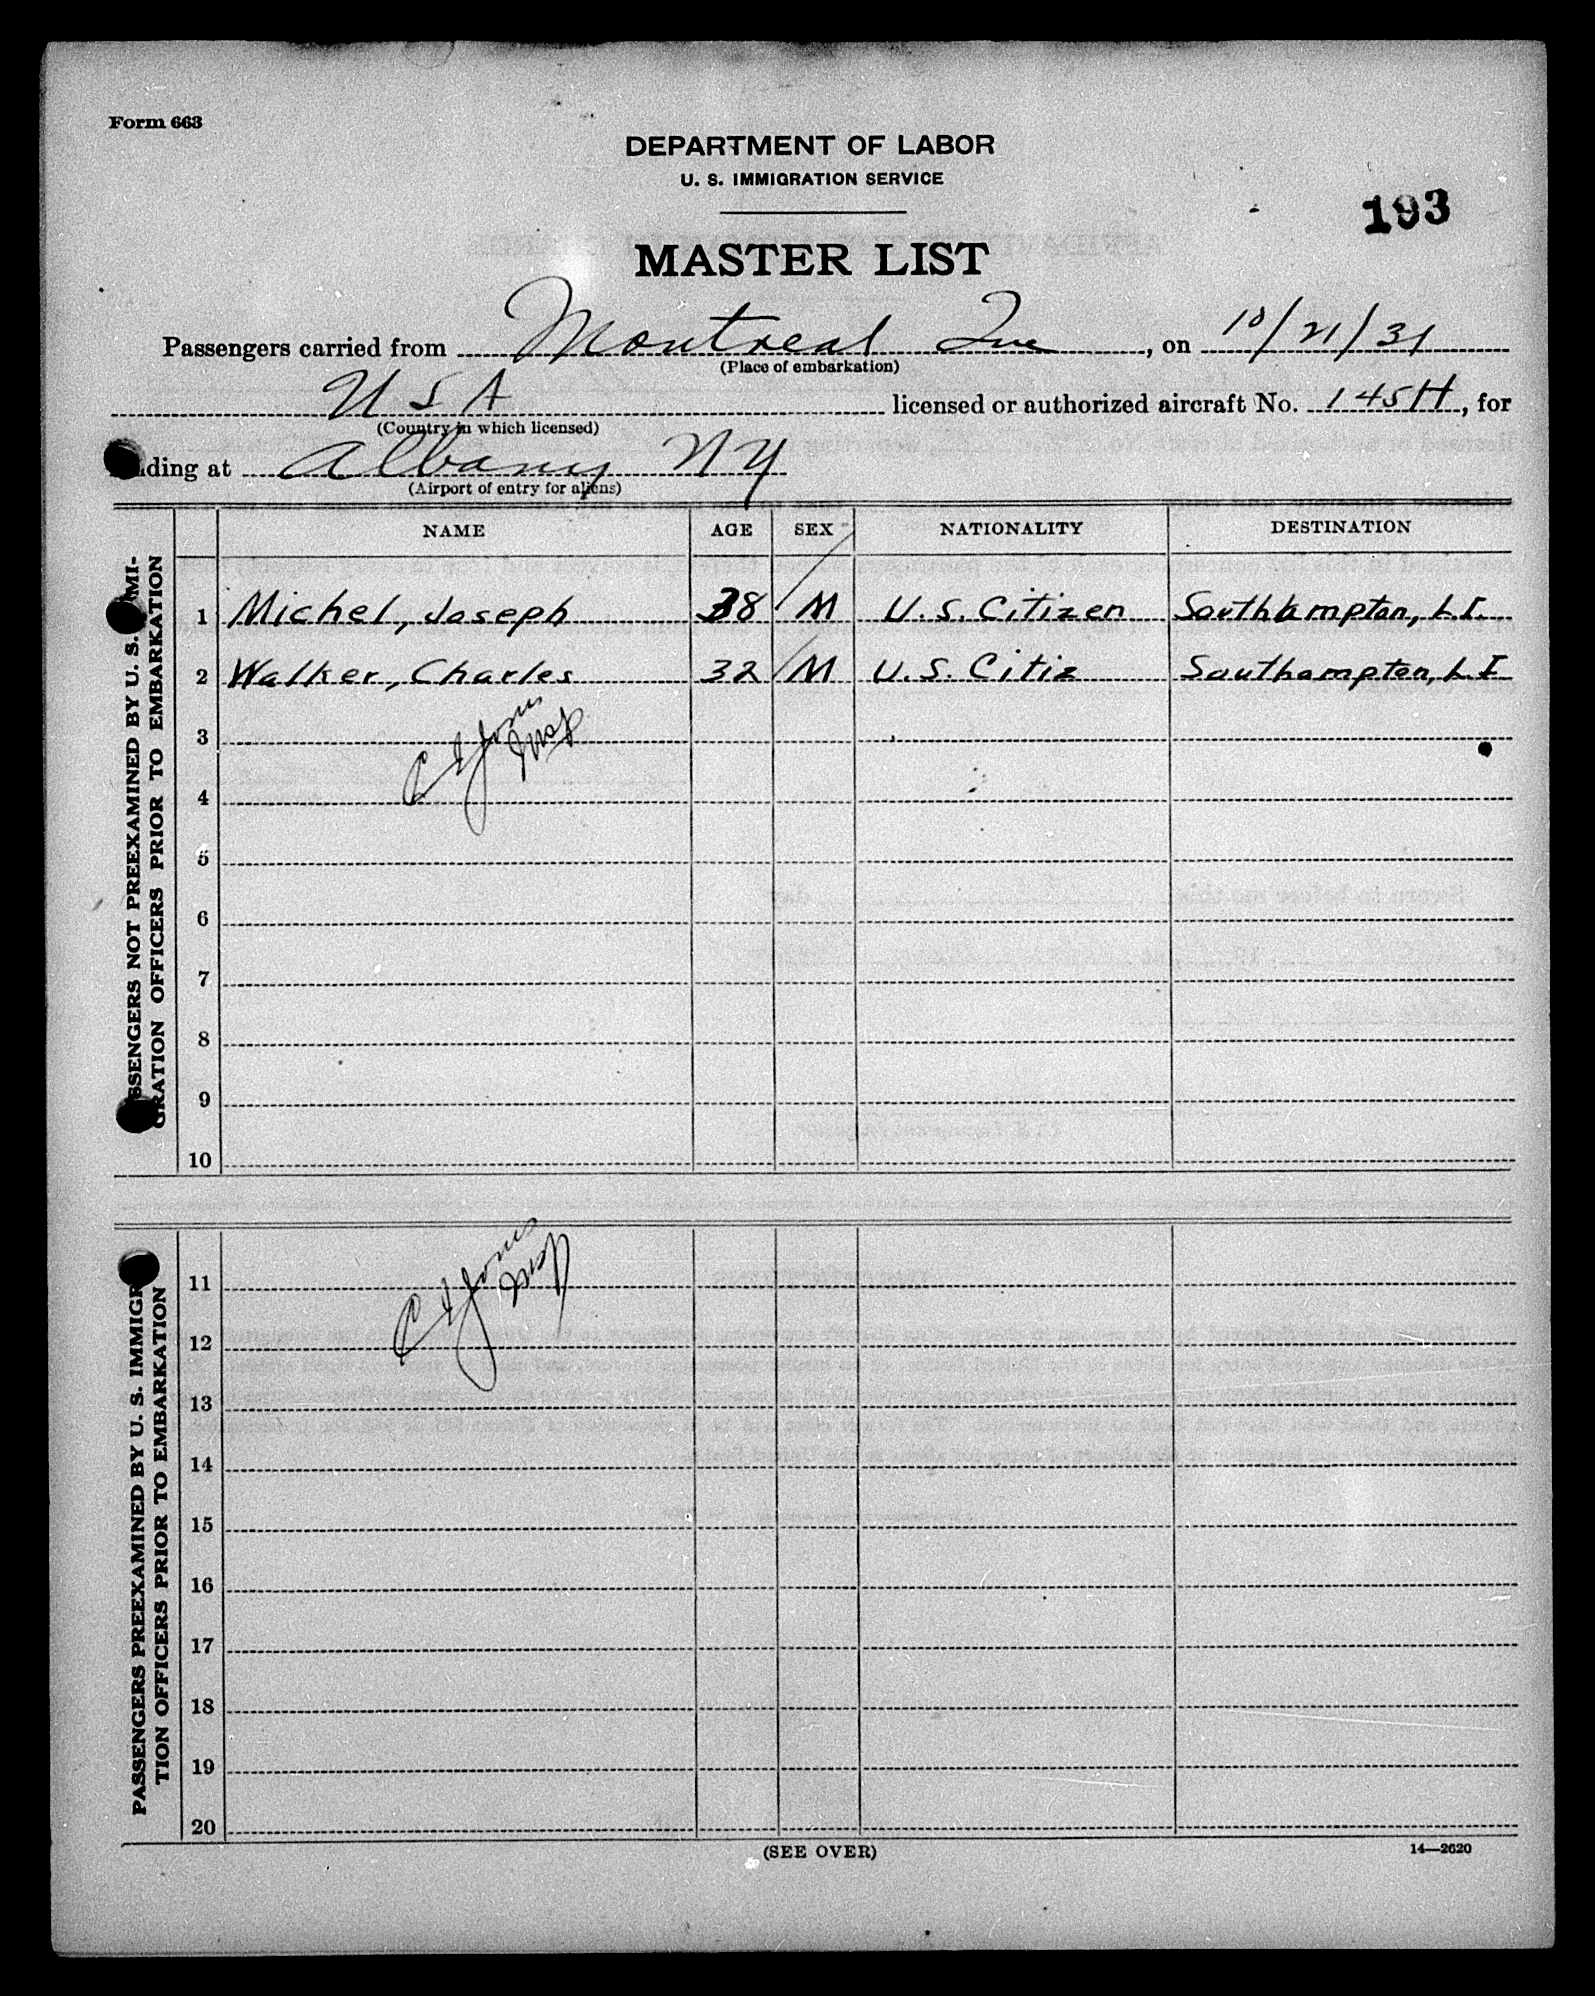 Form 663
DEPARTMENT OF LABOR
U. S. IMMIGRATION SERVICE
193
MASTER LIST
Passengers carried from Montreal Que, on 10/21/31
(Place of embarkation)
USA licensed or authorized aircraft No. 145H, for
(Country in which licensed)
ding at Albany NY
(Airport of entry for aliens)
NAME AGE SEX NATIONALITY DESTINATION
SSENGERS NOT PREEXAMINED BY U. S. MI-
GRATION OFFICERS PRIOR TO EMBARKATION
1 Michel, Joseph 38 M U.S. Citizen Southhampton, L.I.
2 Walker, Charles 32 M U.S. Citiz Southampton, L.I
C I Jones
Insp
3
4
5
6
7
8
9
10
PASSENGERS PREEXAMINED BY U. S. IMMIGR
TION OFFICERS PRIOR TO EMBARKATION
C I Jones
Insp
11
12
13
14
15
16
17
18
19
20
(SEE OVER)
14—2620